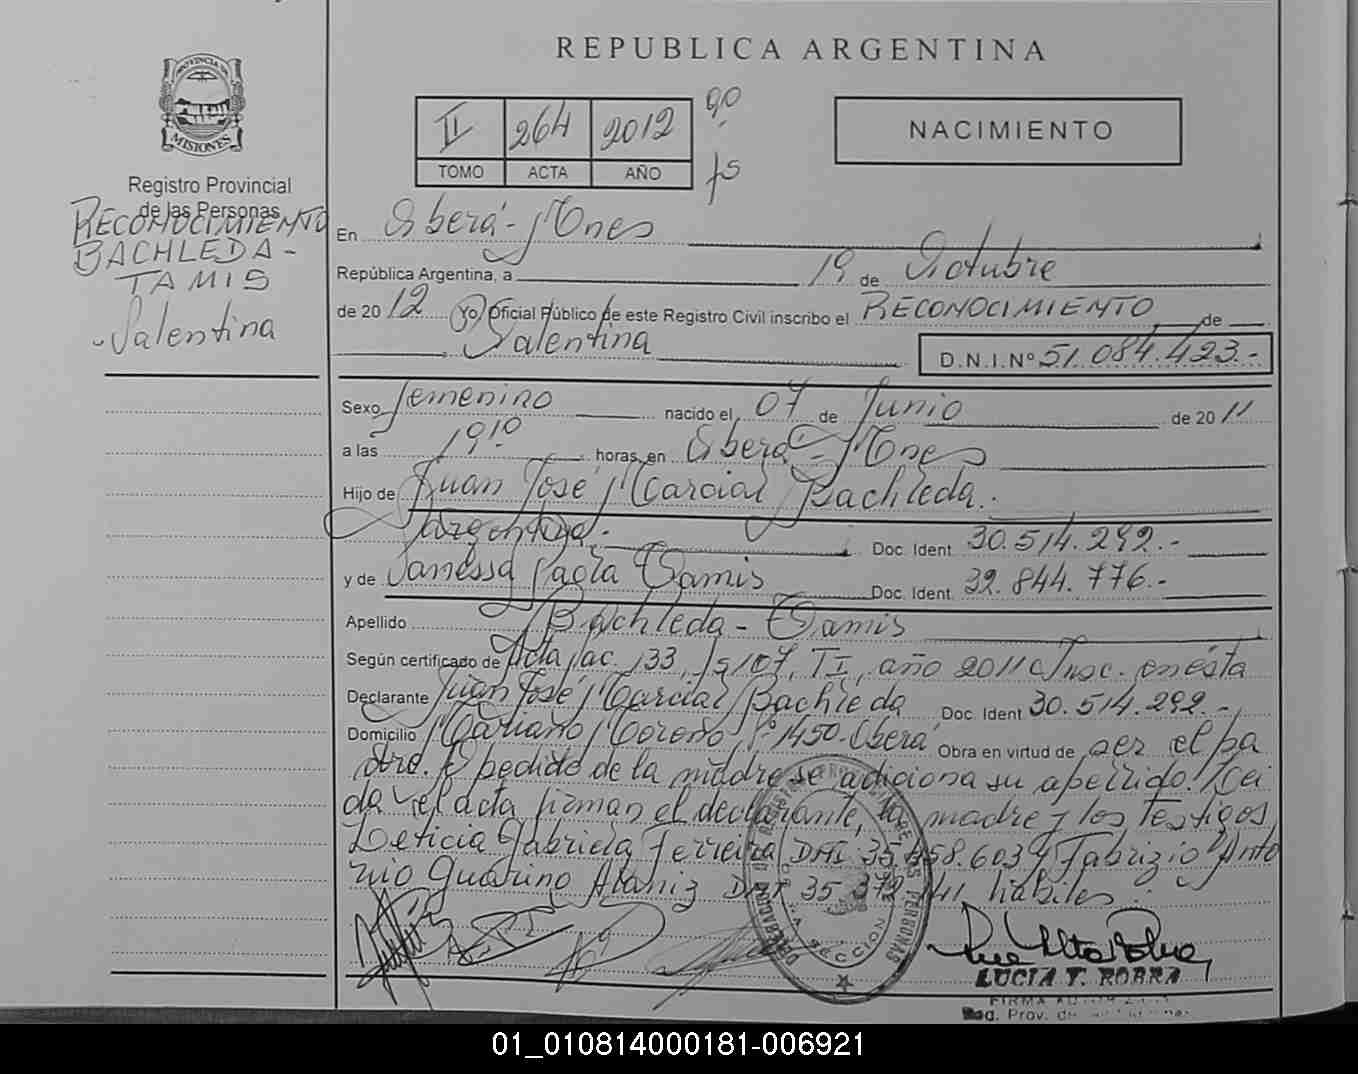 REPUBLICA ARGENTINA
PROVINCIA DE
MISIONES
Registro Provincial
de las Personas
RECONOCIMIENTO
BACHLEDA -
TAMIS
Valentina
II 264 2012 90
TOMO ACTA AÑO fs
NACIMIENTO
En Oberá - Mnes
República Argentina, a 19 de Octubre
de 2012 Yo Oficial Público de este Registro Civil inscribo el RECONOCIMIENTO de
Valentina D.N.I. Nº 51.084.423.-
Sexo femenino nacido el 07 de Junio de 2011
a las 19 10 horas, en Oberá - Mnes
Hijo de Juan José Marcial Bachleda.
Argentina. Doc. Ident. 30.514.292.-
y de Vanessa Paola Tamis Doc. Ident. 32.844.776.-
Apellido Bachleda - Tamis
Según certificado de Acta Nac. 133, fs 107, TI, año 2011 Insc. en ésta
Declarante Juan José Marcial Bachleda Doc. Ident 30.514.292.-
Domicilio Mariano Moreno Nº 1450 - Oberá Obra en virtud de ser el pa
dre. A pedido de la madre se adiciona su apellido. Lei
da el acta firman el declarante, la madre y los testigos
Leticia Gabriela Ferreira DNI 35. 58.603 y Fabrizio Anto
nio Guarino Alaniz DNI 35 372 41 hábiles.
SECCION
LUCIA T. ROBRA
Prov. de
01_010814000181-006921